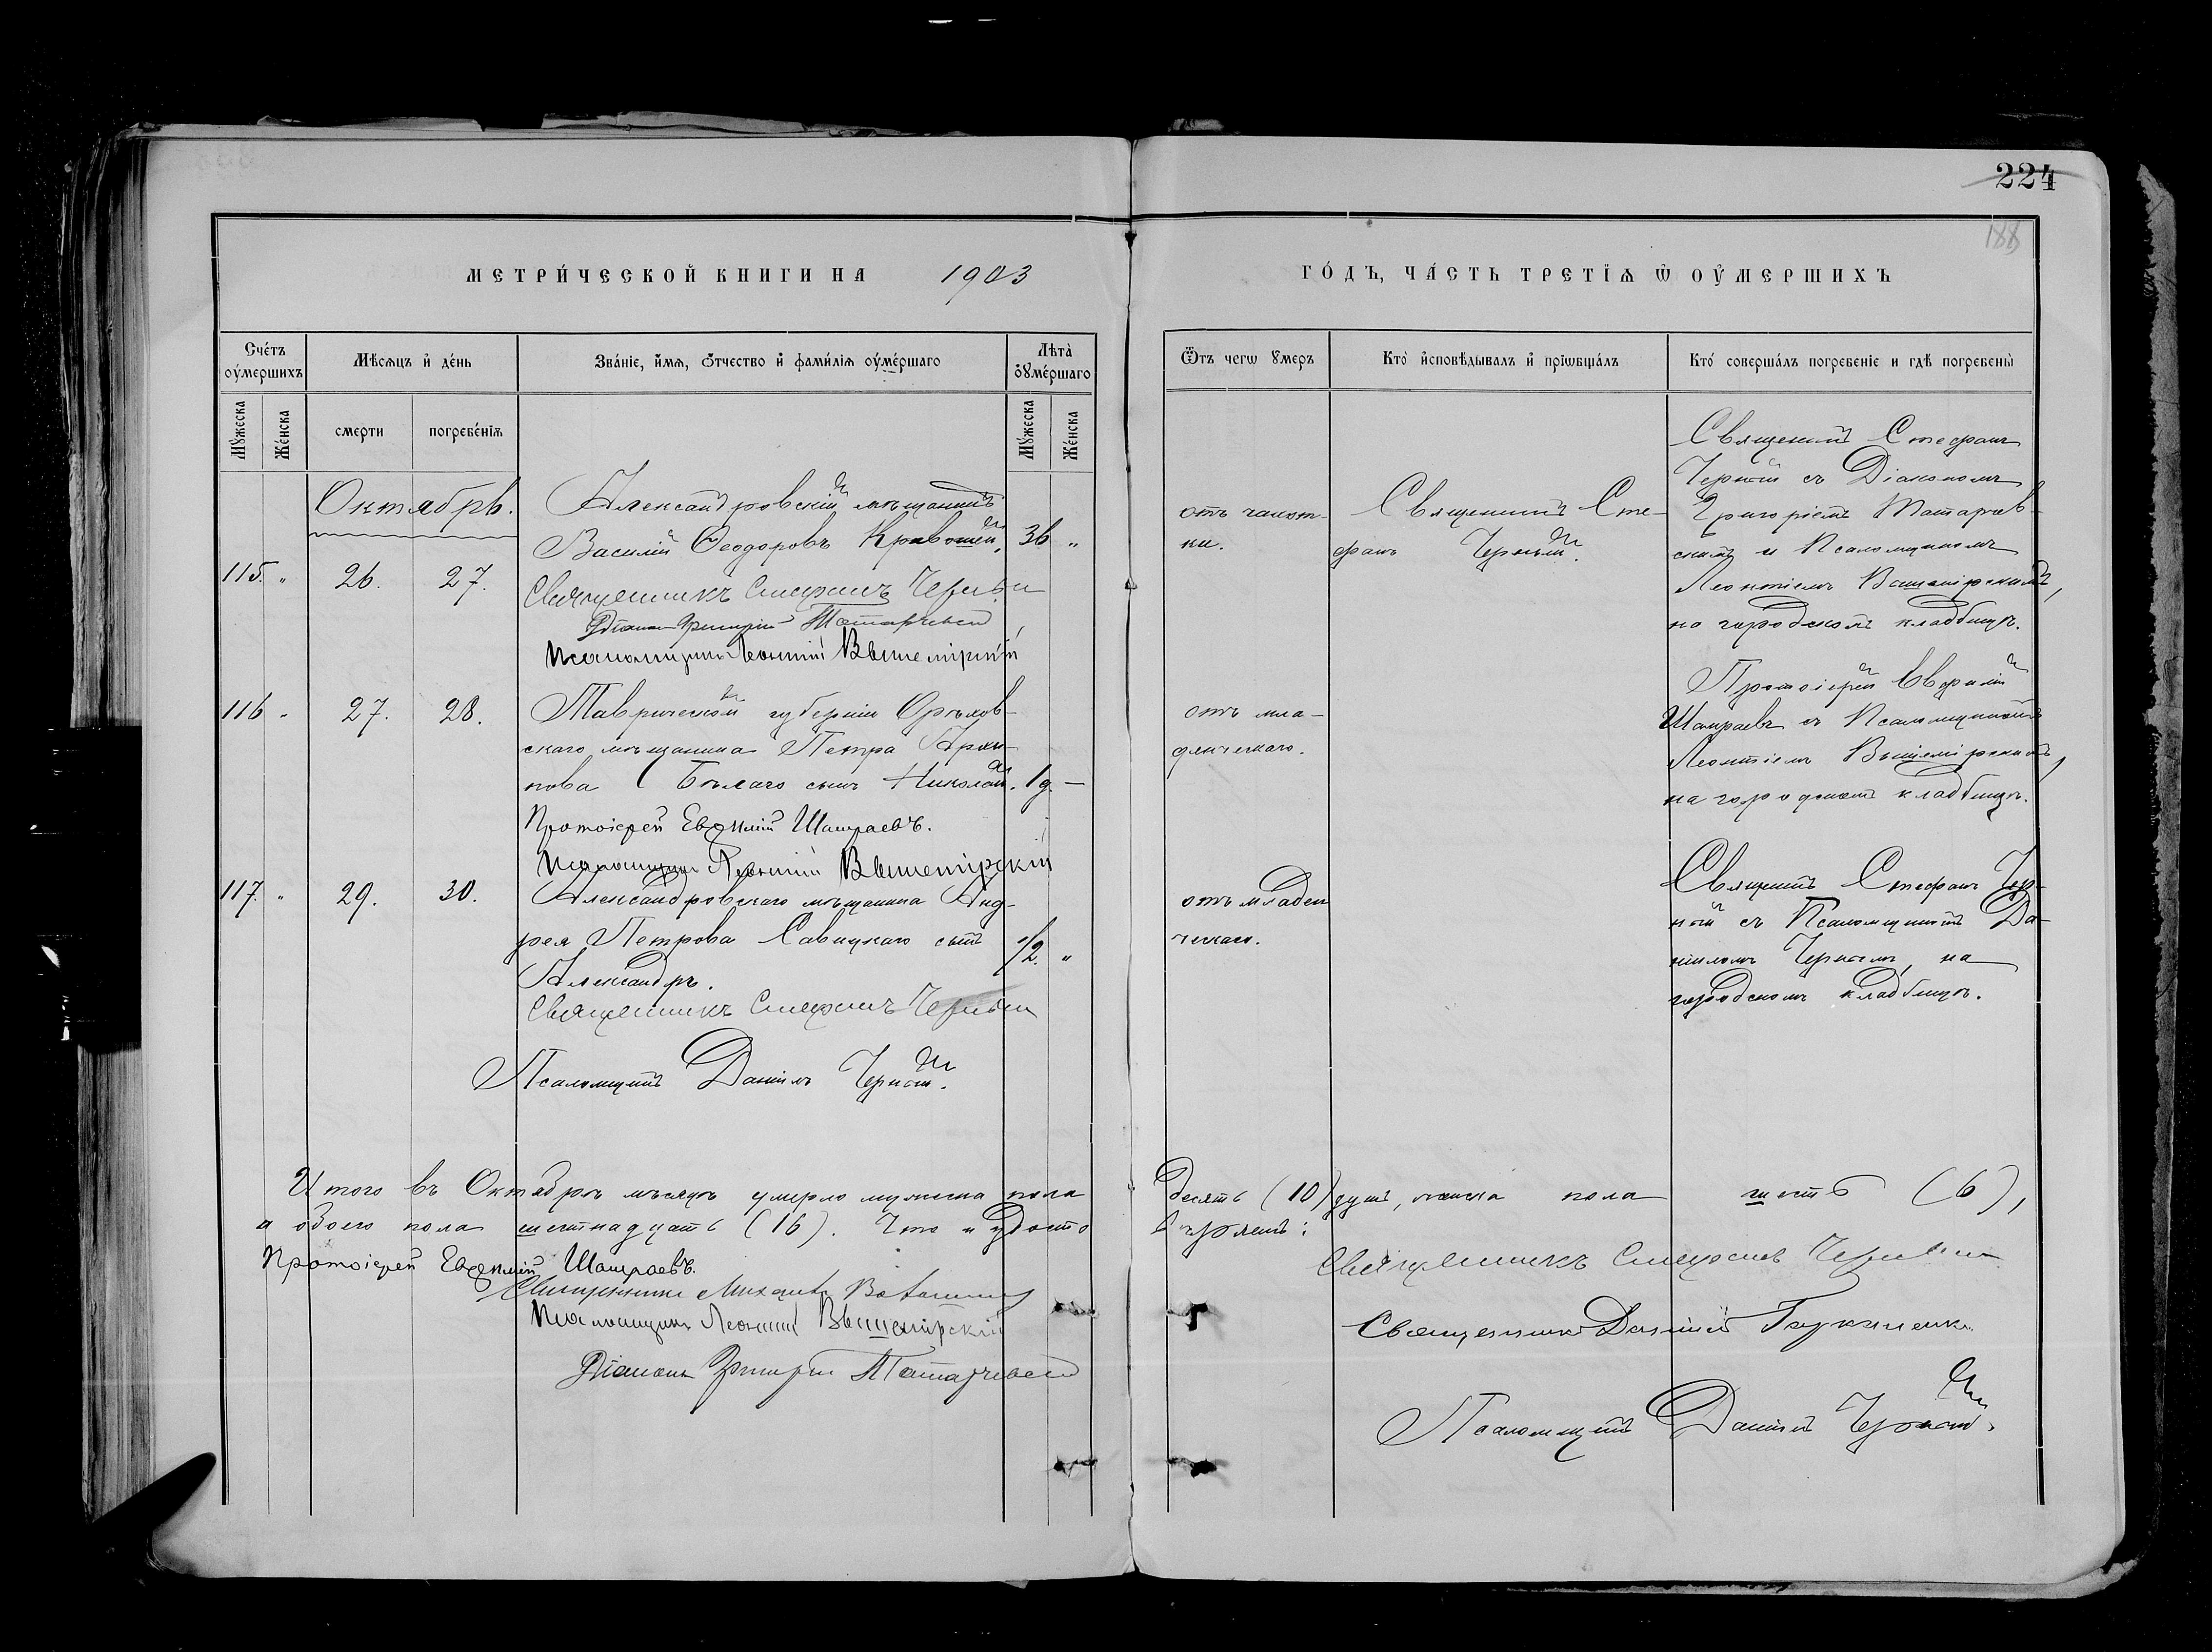 224
188
МЕТРИ́ЧЕСКОЙ КНИГИ НА 1903
ГО́ДЪ, ЧА́СТЬ ТРЕТІѦ Ѡ ОУ́МЕРШИХЪ
Сче́тъ оу́мершихъ
Мѣсѧцъ и҆ де́нь
Зва́нїе, и҆́мѧ, ѻ҆́тчество и҆ фами́лїѧ оуме́ршаго
Лѣта̀ оуме́ршаго
Ѿтъ чегѡ ᲂумеръ
Кто̀ и҆сповѣ́дывалъ и҆ прїѡбща́лъ
Кто́ соверша́лъ погребе́нїе и гдѣ̀ погребены̀
Му́жеска
Же́нска
смерти
погребе́нїѧ
Му́жеска
Же́нска
Октябрь.
Александровскій мѣщанинъ
Василій Ѳеодоровъ Кривошей,
36 "
115. "
26.
27.
Священникъ Стефанъ Черный
Діаконъ Григорій Татарчевскій
Псаломщикъ Леонтій Вышемірскій
отъ чахот-
ки.
Священникъ Сте-
фанъ Черный.
Священникъ Стефанъ
Черный съ Діакономъ
Григоріемъ Татарчев-
скимъ и Псаломщикомъ
Леонтіемъ Вышемірскимъ,
на городскомъ кладбищѣ.
116 "
27.
28.
Таврической губерніи Орѣхов-
скаго мѣщанина Петра
Бѣлаго сынъ Николай.
1 г. —
Протоіерей Евфимій Шамраевъ.
Псаломщикъ Леонтій Вышемірскій
отъ мла-
денческаго.
Протоіерей Евфимій
Шамраевъ съ Псаломщикомъ
Леонтіемъ Вышемірскимъ,
на городскомъ кладбищѣ.
117. "
29.
30.
Александровскаго мѣщанина Анд-
рея Петрова Савицкаго сынъ
Александръ.
1/2. "
Священникъ Стефанъ Черный
Псаломщикъ Даніилъ Черный.
отъ младен
ческаго.
Священникъ Стефанъ Чер-
ный съ Псаломщикомъ Да-
ніиломъ Чернымъ, на
городскомъ кладбищѣ.
Итого въ Октябрѣ мѣсяцѣ умерло мужеска пола десять (10) душъ, женска пола шесть (6),
а обоего пола шестнадцать (16). Что и удосто
вѣряемъ:
Протоіерей Евфимій Шамраевъ.
Священникъ Михаилъ
Псаломщикъ Леонтій Вышемірскій
Діаконъ Григорій Татарчевскій
Священникъ Стефанъ Черный
Священникъ
Псаломщикъ Даніилъ Черный.